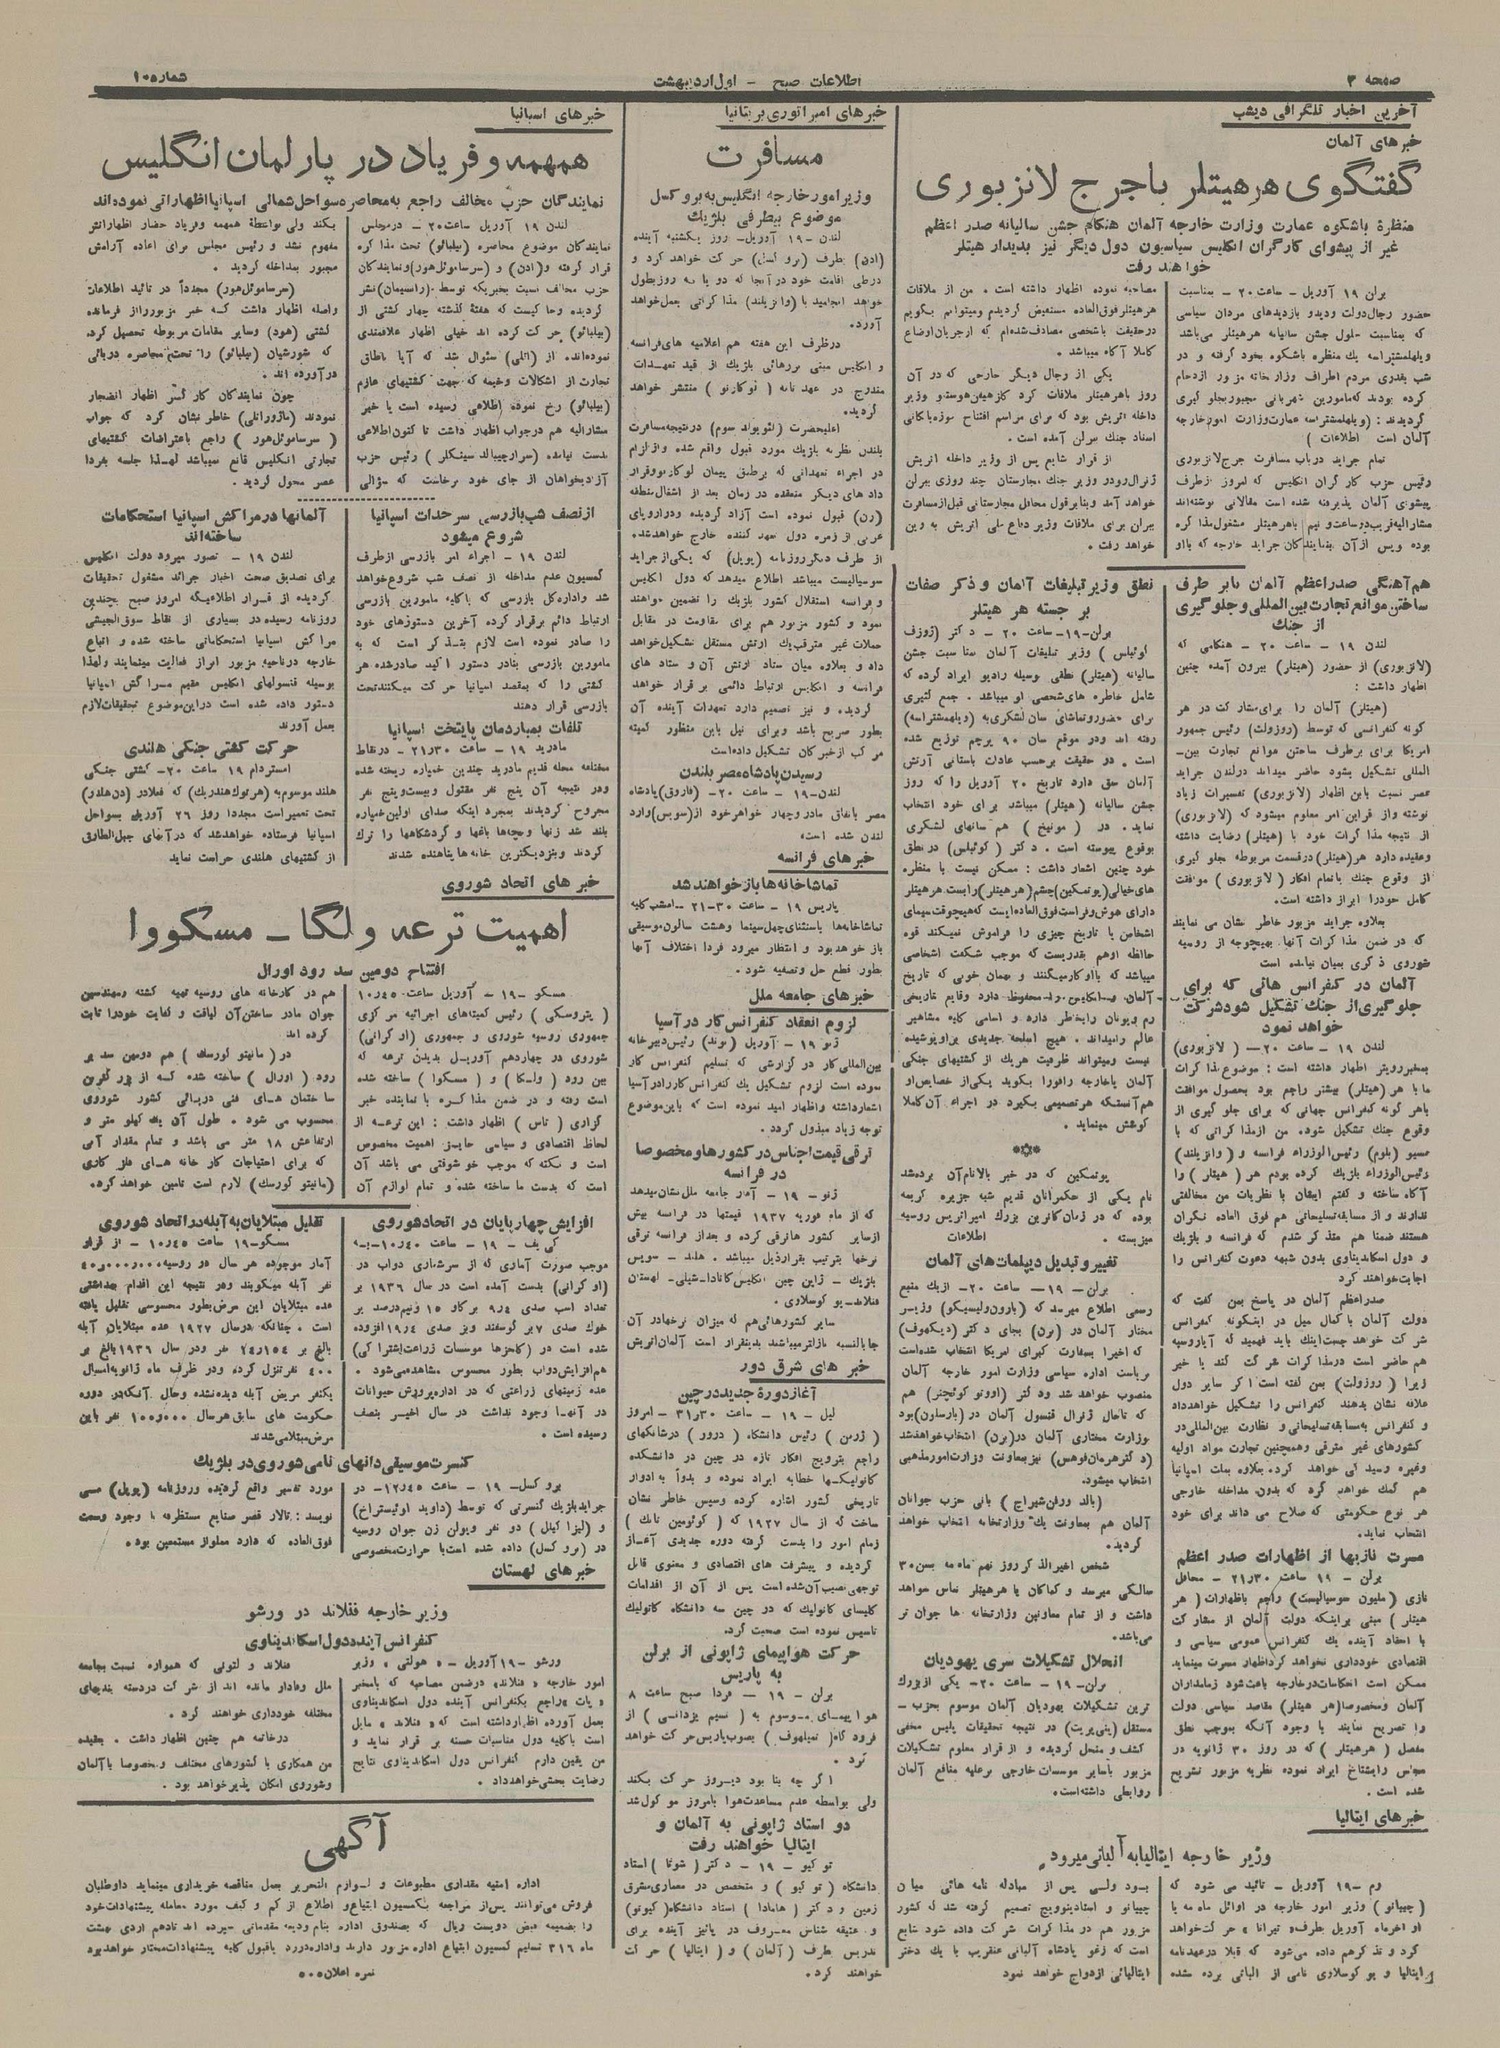 صفحه ۲
اطلاعات صبح - اول اردیبهشت
شماره ۱۰
آخرین اخبار تلگرافی دیشب
خبرهای آلمان
گفتگوی هر هیتلر با جرج لانزبوری
منظرهٔ باشکوه عمارت وزارت خارجه آلمان هنگام جشن سالیانه صدر اعظم
غیر از پیشوای کارگران انگلیس سیاسیون دول دیگر نیز بدیدار هیتلر
خواهند رفت
برلن ۱۹ آوریل - ساعت ۲۰ - بمناسبت
حضور رجال دولت ودید و بازدیدهای مردان سیاسی
که بمناسبت حلول جشن سالیانه هر هیتلر می‌باشد
ویلهلمشتراسه یك منظره باشکوه بخود گرفته و در
شب بقدری مردم اطراف وزارتخانه مزبور ازدحام
کرده بودند که مامورین شهربانی مجبور بجلوگیری
گردیدند : (ویلهلمشتراسه عمارت وزارت امور خارجه
آلمان است اطلاعات )
تمام جراید در باب مسافرت جرج لانزبوری
رئیس حزب کارگران انگلیس که امروز از طرف
پیشوای آلمان پذیرفته شده است مقالاتی نوشته‌اند
مشارالیه قریب دو ساعت و نیم با هر هیتلر مشغول مذاکره
بوده وپس از آن بنمایندگان جراید خارجه که با او
مصاحبه نموده اظهار داشته است . من از ملاقات
هر هیتلر فوق العاده مستفیض گردیدم ومیتوانم بگویم
در حقیقت با شخصی مصادف شده‌ام که از جریان اوضاع
کاملا آگاه میباشد .
یکی از رجال دیگر خارجی که در آن
روز با هر هیتلر ملاقات کرد گلزهین هوستو وزیر
داخله اتریش بود که برای مراسم افتتاح موزه بایگانی
اسناد جنك ببرلن آمده است .
از قرار شایع پس از وزیر داخله اتریش
ژنرال رودر وزیر جنك مجارستان چند روزی ببرلن
خواهد آمد وبنابر قول محافل مجارستانی قبل از مسافرت
ببرلن برای ملاقات وزیر دفاع ملی اتریش به وین
خواهد رفت .
هم آهنگی صدراعظم آلمان با بر طرف
ساختن موانع تجارت بین‌المللی و جلوگیری
از جنك
لندن ۱۹ - ساعت ۲۰ - هنگامی که
(لانزبوری) از حضور (هیتلر) بیرون آمده چنین
اظهار داشت :
(هیتلر) آلمان را برای مشارکت در هر
گونه کنفرانسی که توسط (روزولت) رئیس جمهور
امریکا برای برطرف ساختن موانع تجارت بین-
المللی تشکیل بشود حاضر میداند در لندن جراید
عصر نسبت باین اظهار (لانزبوری) تفسیرات زیاد
نوشته و از قراین امر معلوم میشود که (لانزبوری)
از نتیجه مذاکرات خود با (هیتلر) رضایت داشته
وعقیده دارد هر (هیتلر) در قسمت مربوطه بجلوگیری
از وقوع جنك با تمام افکار (لانزبوری) موافقت
کامل خود را ابراز داشته است .
بعلاوه جراید مزبور خاطر نشان می نمایند
که در ضمن مذاکرات آنها بهیچوجه از روسیه
شوروی ذکری بمیان نیامده است
آلمان در کنفرانس هائی که برای
جلوگیری از جنك تشکیل شود شرکت
خواهد نمود
لندن ۱۹ - ساعت ۲۰ - (لانزبوری)
بمخبر رویتر اظهار داشته است : موضوع مذاکرات
ما با هر (هیتلر) بیشتر راجع بود بحصول موافقت
با هر گونه کنفرانس جهانی که برای جلوگیری از
وقوع جنك تشکیل شود. من از مذاکراتی که با
مسیو (بلوم) رئیس الوزراء فرانسه و (وانزیلند)
رئیس الوزراء بلژیك کرده بودم هر ( هیتلر ) را
آگاه ساخته و گفتم ایشان با نظریات من مخالفتی
ندارند و از مسابقه تسلیحاتی هم فوق العاده نگران
هستند ضمنا هم متذکر شدم که فرانسه و بلژیك
و دول اسکاندیناوی بدون شبهه دعوت کنفرانس را
اجابت خواهند کرد
صدراعظم آلمان در پاسخ بمن گفت که
دولت آلمان با کمال میل در اینگونه کنفرانس
شرکت خواهد جست اینك باید فهمید که آیا روسیه
هم حاضر است در مذاکرات شرکت کند یا خیر
زیرا ( روزولت) بمن گفته است اگر سایر دول
علاقه نشان بدهند کنفرانس را تشکیل خواهد داد
و کنفرانس به مسابقه تسلیحاتی و نظارت بین‌المللی در
کشورهای غیر مترقی وهمچنین تجارت مواد اولیه
وغیره رسیدگی خواهد کرد. بعلاوه بملت اسپانیا
هم کمك خواهد کرد که بدون مداخله خارجی
هر نوع حکومتی که صلاح می داند برای خود
انتخاب نماید.
مسرت نازیها از اظهارات صدر اعظم
برلن - ۱۹ ساعت ۲۱٫۳۰ - محافل
نازی (ملیون سوسیالیست) راجع باظهارات ( هر
هیتلر ) مبنی براینکه دولت آلمان از مشارکت
با اتحاد آینده یك کنفرانس عمومی سیاسی و
اقتصادی خودداری نخواهد کرد اظهار مسرت مینماید
ممکن است انعکاسات در خارجه باعث شود زمامداران
آلمان ومخصوصا (هر هیتلر) مقاصد سیاسی دولت
را تصریح نمایند با وجود آنکه بموجب نطق
مفصل ( هر هیتلر ) که در روز ۳۰ ژانویه در
مجلس رایشتاخ ایراد نموده نظریه مزبور تشریح
شده است .
نطق وزیر تبلیغات آلمان و ذکر صفات
بر جسته هر هیتلر
برلن-۱۹- ساعت ۲۰ - دکتر (ژوزف
گوئبلس ) وزیر تبلیغات آلمان بمناسبت جشن
سالیانه (هیتلر) نطقی بوسیله رادیو ایراد کرده که
شامل خاطره های شخصی او میباشد . جمع کثیری
برای حضور و تماشای سان لشکری به (ویلهمشتراسه)
رفته اند و در موقع سان ۹۰ پرچم توزیع شده
است . در حقیقت برحسب عادات باستانی آرتش
آلمان حق دارد تاریخ ۲۰ آوریل را که روز
جشن سالیانه ( هیتلر) میباشد برای خود انتخاب
نماید. در ( مونیخ ) هم سانهای لشکری
بوقوع پیوسته است . دکتر ( گوئبلس) در نطق
خود چنین اشعار داشت : ممکن نیست با منظره
های خیالی ( پوتمکین) چشم ( هر هیتلر ) را بست. هر هیتلر
دارای هوش و فراست فوق‌العاده ایست که هیچوقت سیمای
اشخاص یا تاریخ چیزی را فراموش نمیکند قوه
حافظه او هم بقدریست که موجب شگفت اشخاصی
میباشد که با او کار میکنند و بهمان خوبی که تاریخ
آلمان و انگلیس را محفوظ دارد وقایع تاریخی
رم و یونان را بخاطر دارد و اسامی کلیه مشاهیر
عالم را میداند . هیچ اسلحه جدیدی بر او پوشیده
نیست و میتواند ظرفیت هر یك از کشتیهای جنگی
آلمان یا خارجه را فورا بگوید یکی از خصایص او
هم آنستکه هر تصمیمی بگیرد در اجراء آن کاملا
کوشش مینماید .
***
پوتمکین که در خبر بالا نام آن برده شد
نام یکی از حکمرانان قدیم شبه جزیره کریمه
بوده که در زمان کاترین بزرك امپراتریس روسیه
میزیسته . اطلاعات
تغییر و تبدیل دیپلمات های آلمان
برلن - ۱۹ - ساعت ۲۰ - از یك منبع
رسمی اطلاع میرسد که (بارون ولیسیکو) وزیر
مختار آلمان در (برن) بجای دکتر (دیکهوف)
که اخیرا بسفارت کبرای امریکا انتخاب شده‌است
بریاست اداره سیاسی وزارت امور خارجه آلمان
منصوب خواهد شد و دکتر (اوتو کوتچنر) هم
که تا حال ژنرال قنسول آلمان در (بارسلون) بود
بوزارت مختاری آلمان در (برن) انتخاب خواهد شد
(دکتر هرمان فوهس) نیز بمعاونت وزارت امور مذهبی
انتخاب میشود.
(بالدورفن شیراج) بانی حزب جوانان
آلمان هم بمعاونت یك وزارتخانه انتخاب خواهد
گردید.
شخص اخیر الذکر روز نهم ماه مه بسن ۳۰
سالگی میرسد و کماکان با هر هیتلر تماس خواهد
داشت و از تمام معاونین وزارتخانه ها جوان تر
می باشد.
انحلال تشکیلات سری یهودیان
برلن-۱۹ - ساعت ۲۰ - یکی از بزرك
ترین تشکیلات یهودیان آلمان موسوم بحزب -
مستقل (بنی‌بریت) در نتیجه تحقیقات پلیس مخفی
کشف و منحل گردیده و از قرار معلوم تشکیلات
مزبور با سایر موسسات خارجی بر علیه منافع آلمان
روابطی داشته است.
خبرهای ایتالیا
وزیر خارجه ایتالیا به آلبانی میرود
رم - ۱۹ آوریل - تائید می شود که
( چیانو ) وزیر امور خارجه در اوائل ماه مه یا
اواخر ماه آوریل بطرف « تیرانا » حرکت خواهد
کرد و تذکر هم داده می‌شود که قبلا در عهدنامه
ایتالیا و یوگوسلاوی نامی از آلبانی برده نشده
بود ولی پس از مبادله نامه هائی میان
چیانو و استادینوویچ تصمیم گرفته شد که کشور
مزبور هم در مذاکرات شرکت داده شود شایع
است که زغو پادشاه آلبانی عنقریب با یك دختر
ایتالیائی ازدواج خواهد نمود
خبرهای امپراتوری بریتانیا
مسافرت
وزیر امور خارجه انگلیس به بروکسل
موضوع بیطرفی بلژیك
لندن - ۱۹ آوریل - روز یکشنبه آینده
(ادن) بطرف (بروکسل) حرکت خواهد کرد و
در طی اقامت خود در آنجا که دو یا سه روز بطول
خواهد انجامید با (وانزیلند) مذاکراتی بعمل خواهد
آورد.
در ظرف این هفته هم اعلامیه های فرانسه
و انگلیس مبنی بر رهائی بلژیك از قید تعهدات
مندرج در عهدنامه ( لوکارنو ) منتشر خواهد
گردید.
اعلیحضرت (لئوپولد سوم) در نتیجه مسافرت
بلندن نظریه بلژیك مورد قبول واقع شده و از الزام
در اجراء تعهداتی که برطبق پیمان لوکارنو و قرار
دادهای دیگر منعقده در زمان بعد از اشغال منطقه
(رن) قبول نموده است آزاد گردیده و در اروپای
غربی از زمره دول تعهد کننده خارج خواهد شد.
از طرف دیگر روزنامه (پوپل) که یکی از جراید
سوسیالیست میباشد اطلاع میدهد که دول انگلیس
و فرانسه استقلال کشور بلژیك را تضمین خواهند
نمود و کشور مزبور هم برای مقاومت در مقابل
حملات غیر مترقب یك ارتش مستقل تشکیل خواهد
داد و بعلاوه میان ستاد ارتش آن و ستاد های
فرانسه و انگلیس ارتباط دائمی برقرار خواهد
گردید . و نیز تصمیم دارد تعهدات آینده آن
بطور صریح باشد و برای نیل باین منظور کمیته
مرکب از خبرگان تشکیل داده است
رسیدن پادشاه مصر بلندن
لندن-۱۹ - ساعت ۲۰ - (فاروق) پادشاه
مصر باتفاق مادر و چهار خواهر خود از (سویس) وارد
لندن شده است.
خبرهای فرانسه
تماشاخانه ها باز خواهند شد
پاریس ۱۹ - ساعت ۲۱-۳۰ - امشب کلیه
تماشاخانه‌ها باستثنای چهل سینما و هشت سالون موسیقی
باز خواهد بود و انتظار میرود فردا اختلاف آنها
بطور قطع حل و تصفیه شود .
خبرهای جامعه ملل
لزوم انعقاد کنفرانس کار در آسیا
ژنو ۱۹ - آوریل (بوند) رئیس دبیرخانه
بین‌المللی کار در گزارشی که تسلیم کنفرانس کار
نموده است لزوم تشکیل یك کنفرانس کار را در آسیا
اشعار داشته و اظهار امید نموده است که باین موضوع
توجه زیاد مبذول گردد .
ترقی قیمت اجناس در کشورها و مخصوصا
در فرانسه
ژنو - ۱۹ - آمار جامعه ملل نشان میدهد
که از ماه فوریه ۱۹۳۷ قیمتها در فرانسه بیش
از سایر کشور ها ترقی کرده و بعد از فرانسه ترقی
نرخها بترتیب بقرار ذیل میباشد . هلند - سویس
بلژیك - ژاپن چین انگلیس کانادا - شیلی - لهستان
فنلاند - یوگوسلاوی .
سایر کشورهائی هم که میزان نرخها در آن
جا بالنسبه نازلتر میباشد بدینقرار است آلمان اتریش
خبر های شرق دور
آغاز دورهٔ جدید در چین
لیل - ۱۹ - ساعت ۲۱٫۳۰ - امروز
( ژرمن ) رئیس دانشگاه (دروو ) در شانگهای
راجع بترویج افکار تازه در چین در دانشکده
کاتولیکها خطابه ایراد نموده و بدوا به ادوار
تاریخی کشور اشاره کرده وسپس خاطر نشان
ساخت که از سال ۱۹۲۷ که ( کوئومین تانك )
زمام امور را بدست گرفته دوره جدیدی آغاز
گردیده و پیشرفت های اقتصادی و معنوی قابل
توجهی نصیب آن شده است پس از آن از اقدامات
کلیسای کاتولیك که در چین سه دانشگاه کاتولیك
تاسیس نموده است صحبت کرد.
حرکت هواپیمای ژاپونی از برلن
به پاریس
برلن - ۱۹ - فردا صبح ساعت ۸
هواپیمای موسوم به ( نسیم یزدانی ) از
فرودگاه (تمپلهوف) بصوب پاریس حرکت خواهد
کرد .
اگر چه بنا بود دیروز حرکت بکند
ولی بواسطه عدم مساعدت هوا بامروز موکول شد
دو استاد ژاپونی به آلمان و
ایتالیا خواهند رفت
توکیو - ۱۹ - دکتر ( شوتا ) استاد
دانشگاه ( توکیو ) و متخصص در معماری مشرق
زمین و دکتر ( هامادا ) استاد دانشگاه (کیوتو)
و عتیقه شناس معروف در پائیز آینده برای
تدریس بطرف (آلمان) و ( ایتالیا ) حرکت
خواهند کرد.
خبرهای اسپانیا
همهمه و فریاد در پارلمان انگلیس
نمایندگان حزب مخالف راجع به محاصره سواحل شمالی اسپانیا اظهاراتی نموده‌اند
لندن ۱۹ آوریل ساعت ۲۰ - در مجلس
نمایندگان موضوع محاصره (بیلبائو) تحت مذاکره
قرار گرفته و (ادن) و (سر ساموئل هور) و نمایندگان
حزب مخالف نسبت بخبریکه توسط (راسیمان) نشر
گردیده وحاکیست که هفتهٔ گذشته چهار کشتی از
(بیلبائو) حرکت کرده اند خیلی اظهار علاقمندی
نموده‌اند. از (اتلی) سئوال شد که آیا باطاق
تجارت از اشکالات وخیمه که جهت کشتیهای عازم
(بیلبائو) رخ نموده اطلاعی رسیده است یا خیر
مشارالیه هم در جواب اظهار داشت تا کنون اطلاعی
بدست نیامده (سرارچیبالد سینکلر ) رئیس حزب
آزدیخواهان از جای خود برخاست که سؤالی
بکند ولی بواسطهٔ همهمه وفریاد حضار اظهاراتش
مفهوم نشد و رئیس مجلس برای اعاده آرامش
مجبور بمداخله گردید .
(سر ساموئل هور) مجدداً در تائید اطلاعات
واصله اظهار داشت که خبر مزبور را از فرمانده
کشتی (هود) وسایر مقامات مربوطه تحصیل کرده
که شورشیان (بیلبائو) را تحت محاصره دریائی
در آورده اند .
چون نمایندگان کارگر اظهار انضجار
نمودند (ماژوراتلی) خاطر نشان کرد که جواب
( سر ساموئل هور ) راجع باعتراضات کشتیهای
تجارتی انگلیس قانع نمیباشد لهذا جلسه بفردا
عصر محول گردید .
از نصف شب بازرسی سرحدات اسپانیا
شروع میشود
لندن ۱۹ - اجراء امر بازرسی از طرف
کمسیون عدم مداخله از نصف شب شروع خواهد
شد و اداره کل بازرسی که با کلیه مامورین بازرسی
ارتباط دائم برقرار کرده آخرین دستورهای خود
را صادر نموده است لازم بتذکر است که به
مامورین بازرسی بنادر دستور اکید صادر شده هر
کشتی را که بمقصد اسپانیا حرکت میکنند تحت
بازرسی قرار دهند
تلفات بمباردمان پایتخت اسپانیا
مادرید ۱۹ - ساعت ۲۱٫۳۰ - در نقاط
مختلفه محله قدیم مادرید چندین خمپاره ریخته شده
و در نتیجه آن پنج نفر مقتول و بیست و پنج نفر
مجروح گردیدند بمجرد اینکه صدای اولین خمپاره
بلند شد زنها و بچه‌ها باغها و گردشگاهها را ترك
کردند و بنزدیکترین خانه ها پناهنده شدند
آلمانها در مراکش اسپانیا استحکامات
ساخته‌اند
لندن ۱۹ - تصور میرود دولت انگلیس
برای تصدیق صحت اخبار جرائد مشغول تحقیقات
گردیده از قرار اطلاعیکه امروز صبح بچندین
روزنامه رسیده در بسیاری از نقاط سوق‌الجیشی
مراکش اسپانیا استحکاماتی ساخته شده و اتباع
خارجه در ناحیه مزبور ابراز فعالیت مینمایند ولهذا
بوسیله قنسولهای انگلیس مقیم مراکش اسپانیا
دستور داده شده است در این موضوع تحقیقات لازم
بعمل آورند
حرکت کشتی جنگی هلندی
امستردام ۱۹ ساعت ۲۰ - کشتی جنگی
هلند موسوم به (هرتوك هندریك) که فعلا در (دن هلدر)
تحت تعمیر است مجددا روز ۲۶ آوریل بسواحل
اسپانیا فرستاده خواهد شد که در آبهای جبل‌الطارق
از کشتیهای هلندی حراست نماید
خبر های اتحاد شوروی
اهمیت ترعه ولگا - مسکووا
افتتاح دومین سد رود اورال
مسکو - ۱۹ - آوریل ساعت ۱۰٫۴۵
( پتروسکی ) رئیس کمیته‌های اجرائیه مرکزی
جمهوری روسیه شوروی و جمهوری (اوکرانی)
شوروی در چهاردهم آوریل بدیدن ترعه که
بین رود ( ولگا ) و ( مسکوا ) ساخته شده
است رفته و در ضمن مذاکره با نماینده خبر
گزاری ( تاس ) اظهار داشت : این ترعه از
لحاظ اقتصادی و سیاسی حایز اهمیت مخصوص
است و نکته که موجب خوشوقتی می باشد آن
است که بدست ما ساخته شده و تمام لوازم آن
هم در کارخانه های روسیه تهیه گشته و مهندسین
جوان ما در ساختن آن لیاقت و کفایت خود را ثابت
کرده اند
در ( مانیتو گورسك ) هم دومین سد بر
رود ( اورال ) ساخته شده که از بزرگترین
ساختمان های فنی دریائی کشور شوروی
محسوب می شود . طول آن یك کیلو متر و
ارتفاعش ۱۸ متر می باشد و تمام مقدار آبی
که برای احتیاجات کارخانه های فلزکاری
(مانیتو گورسك) لازم است تامین خواهد کرد.
افزایش چهارپایان در اتحاد شوروی
کی یف - ۱۹ - ساعت ۱۰٫۴۰ - به
موجب صورت آماری که از سرشماری دواب در
(اوکرانی) بدست آمده است در سال ۱۹۳۶ بر
تعداد اسب صدی ۹٫۴ بر گاو ۱۵ و نیم درصد بر
خوك صدی ۷ بر گوسفند وبز صدی ۱۹٫۴ افزوده
شده است در (کلخزها موسسات زراعت اشتراکی)
هم افزایش دواب بطور محسوس مشاهده می‌شود .
عده زمینهای زراعتی که در اداره پرورش حیوانات
در آنها وجود نداشت در سال اخیر بنصف
رسیده است .
تقلیل مبتلایان به آبله در اتحاد شوروی
مسکو-۱۹ ساعت ۱۰٫۴۵ - از قرار
نفر آبله میکوبند و در نتیجه این اقدام بهداشتی
عده مبتلایان این مرض بطور محسوسی تقلیل یافته
است . چنانکه در سال ۱۹۲۷ عده مبتلایان آبله
بالغ بر ۲۴٫۱۵۴ نفر و در سال ۱۹۳۶ بالغ بر
۴۰۰ نفر تنزل کرده و در ظرف ماه ژانویه امسال
یکنفر مریض آبله دیده نشده وحال آنکه در دوره
حکومت های سابق هر سال ۱۰۰٫۰۰۰ نفر باین
مرض مبتلا می شدند
کنسرت موسیقی دانهای نامی شوروی در بلژیك
بروکسل - ۱۹ - ساعت ۱۲٫۴۵ - در
جراید بلژیك کنسرتی که توسط (داوید اوئیستراخ)
و (لیزا گیلل) دو نفر ویولن زن جوان روسیه
در (بروکسل) داده شده است با حرارت مخصوصی
مورد تفسیر واقع گردیده و روزنامه (پوپل) می
نویسد : تالار قصر صنایع مستظرفه با وجود وسعت
فوق العاده که دارد مملو از مستمعین بود.
خبرهای لهستان
وزیر خارجه فنلاند در ورشو
کنفرانس آینده دول اسکاندیناوی
ورشو - ۱۹ آوریل - « هولتی » وزیر
امور خارجه « فنلاند » در ضمن مصاحبه که با مخبر
« پات » راجع بکنفرانس آینده دول اسکاندیناوی
بعمل آورده اظهار داشته است که « فنلاند » مایل
است با کلیه دول مناسبات حسنه بر قرار نماید و
من یقین دارم کنفرانس دول اسکاندیناوی نتایج
رضایت بخشی خواهد داد .
فنلاند و لتونی که همواره نسبت بجامعه
ملل وفادار مانده اند از شرکت در دسته بندیهای
مختلفه خودداری خواهند کرد .
در خاتمه هم چنین اظهار داشت . بعقیده
من همکاری با کشورهای مختلف و مخصوصا با آلمان
و شوروی امکان پذیر خواهد بود .
آگهی
اداره امنیه مقداری مطبوعات و لوازم التحریر بعمل مناقصه خریداری مینماید داوطلبان
فروش می‌توانند پس از مراجعه بکمسیون ابتیاع و اطلاع از کم و کیف مورد معامله پیشنهادات خود
را بضمیمه قبض دویست ریال که بصندوق اداره بنام ودیعه مقدماتی سپرده اند تا دهم اردی بهشت
ماه ۳۱۶ تسلیم کمسیون ابتیاع اداره مزبور دارند و اداره در رد یا قبول کلیه پیشنهادات مختار خواهد بود
نمره اعلان ۵۰۰